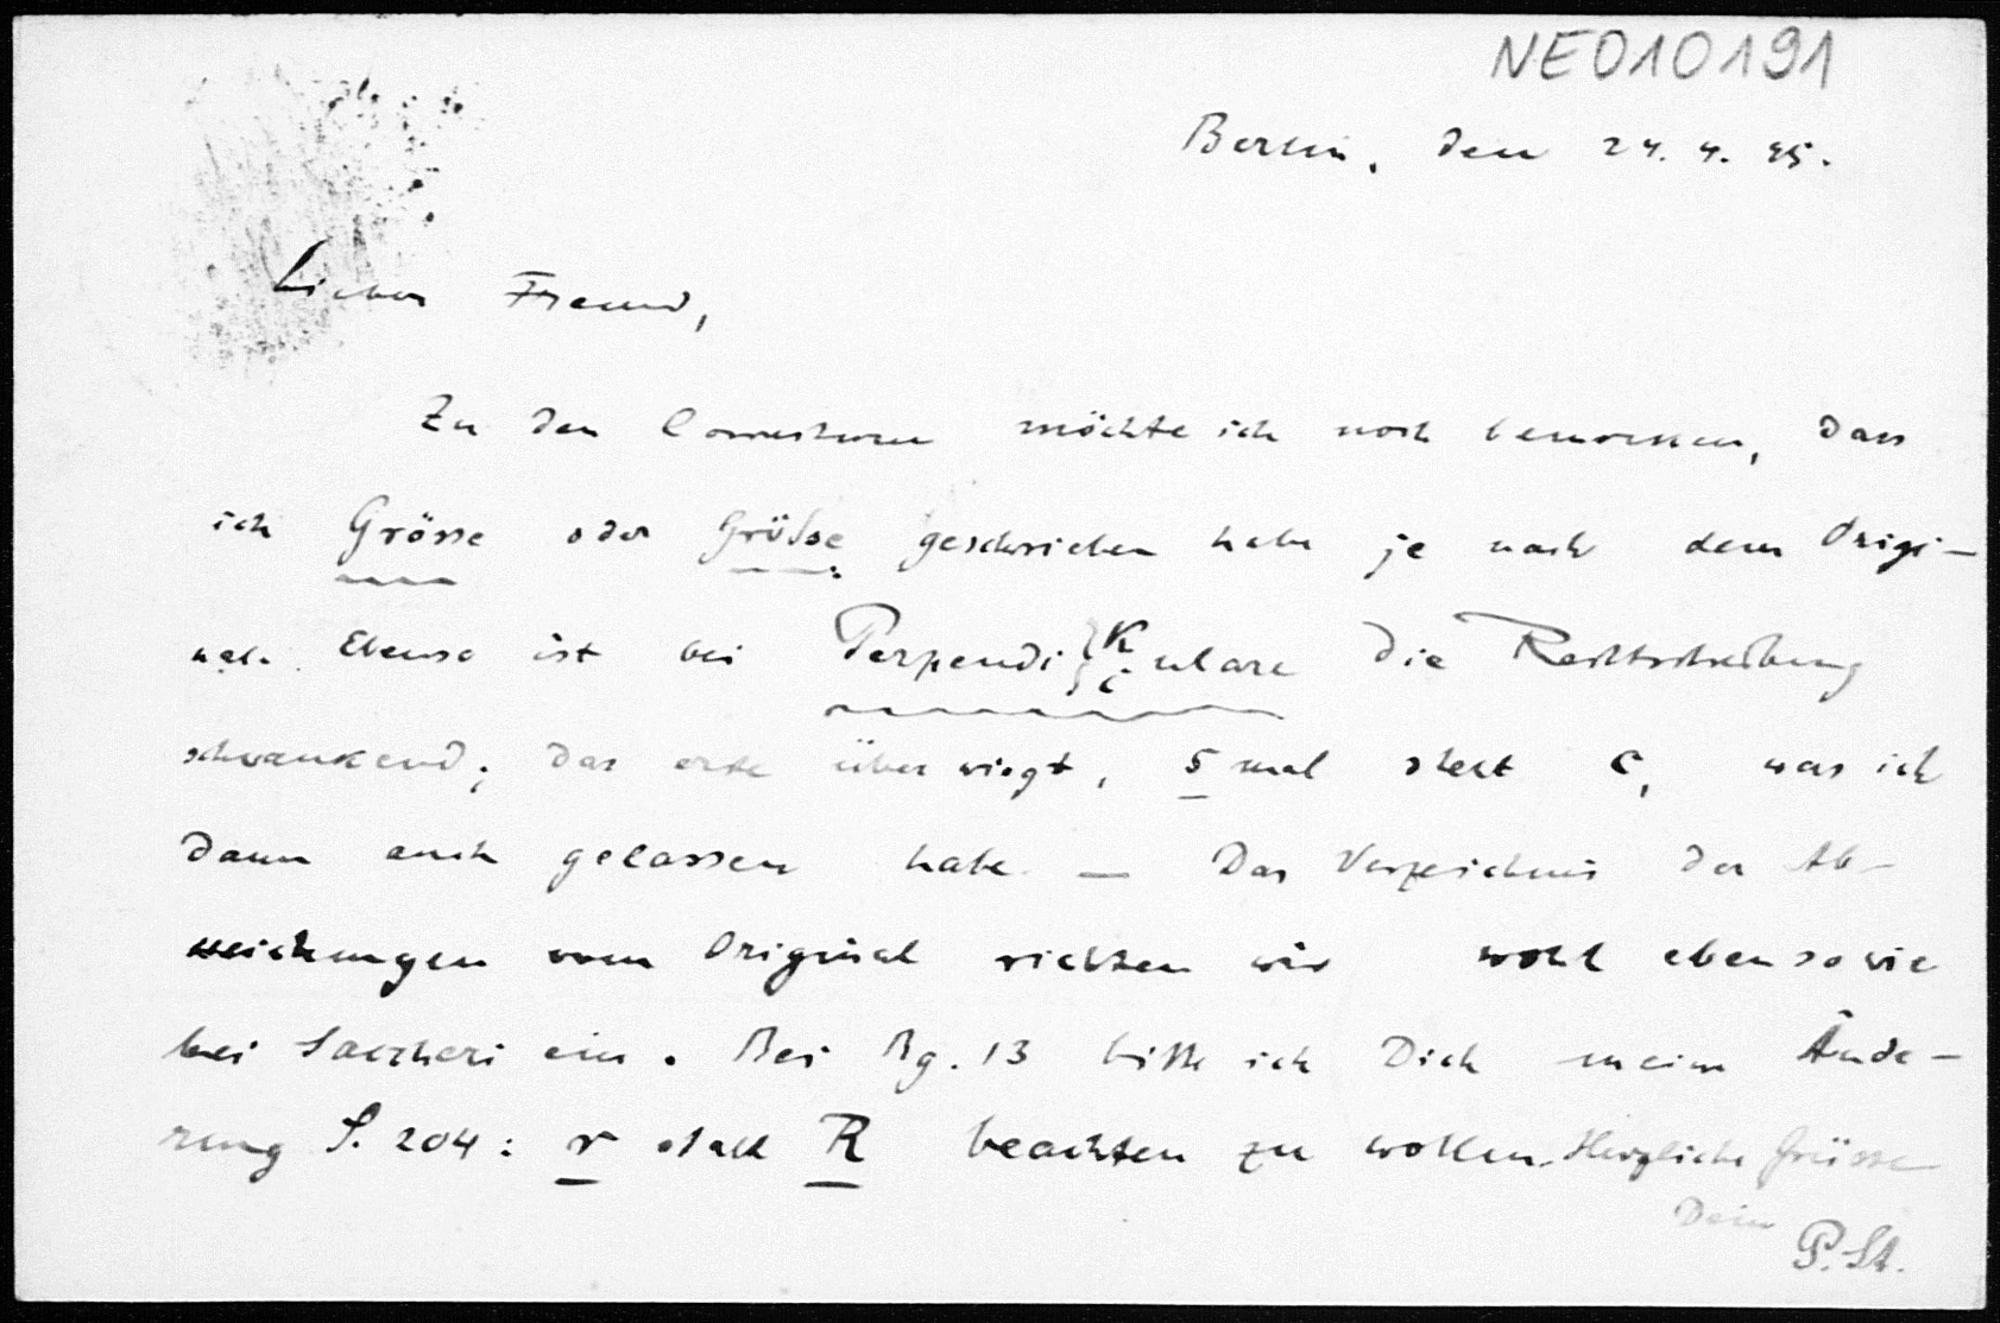 NE010191
Berlin, den 24. 4. 95.
Lieber Freund,
Zu den Correcturen möchte ich noch bemerken, dass
ich Grösse oder Größe geschrieben habe je nach dem Origi-
nal. Ebenso ist bei Perpendi{k/c}ulare die Rechtschreibung
schwankend; das erste überwiegt, 5 mal steht c, was ich
dann auch gelassen habe. — Das Verzeichnis der Ab-
weichungen vom Original richten wir wohl ebenso wie
bei Saccheri ein. Bei Bg. 13 bitte ich Dich meine Ände-
rung S. 204: r statt R beachten zu wollen. Herzliche Grüsse
Dein
P. St.